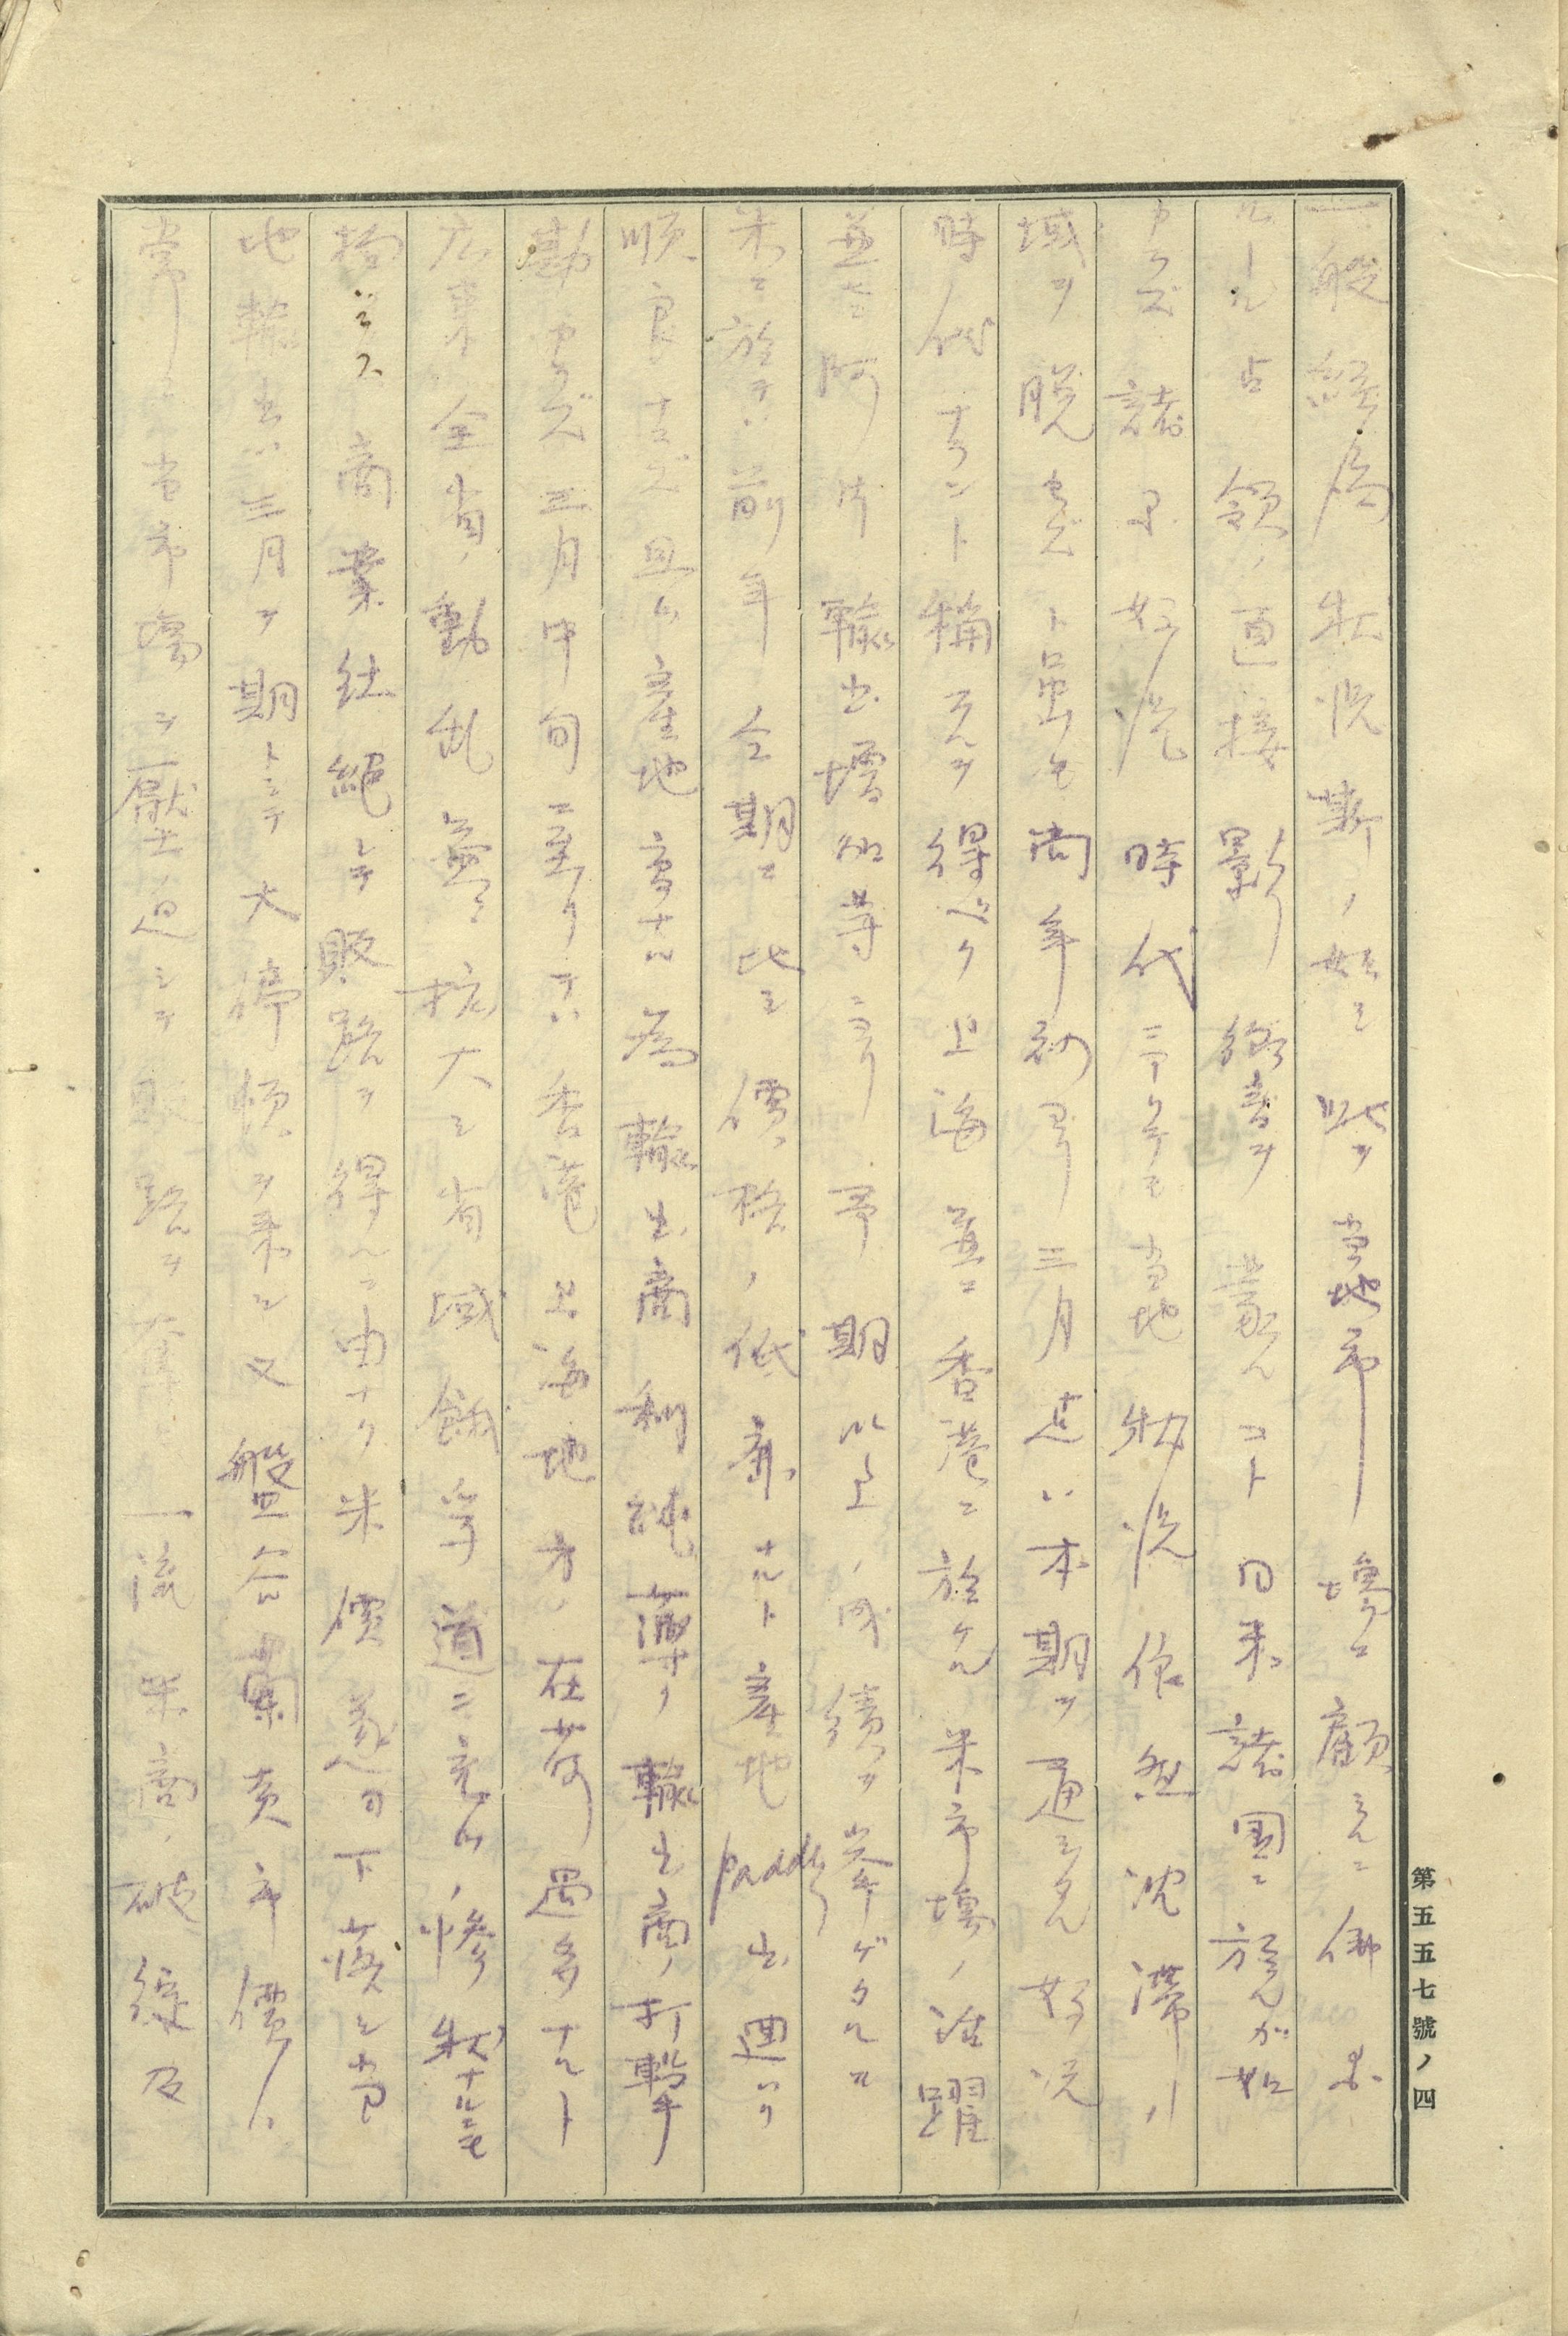 一般経済状況斯ノ如シ此ヲ当地市場ニ顧ミルニ佛
ルール占領ノ直接影響ヲ蒙ルコト日米諸国ニ於ルガ如
カラズ諸国好況時代ニアリテモ当地ノ状況依然沈滞ノ
域ヲ脱セズト虽モ尚年初ヨリ三月迄ハ本期ヲ通シタル好況
時代ナラント稱スルヲ得ベク上海並ニ香港ニ於ケル米市場ノ活躍
並ニ阿片輸出増加等ニヨリ予期以上ノ成績ヲ挙ゲタルガ
米ニ於テハ前年仝期ニ比シ價格ノ低廉ナルト産地paddy出廻リ
順良ナラズ且ツ産地高ナル為輸出商利純薄ク輸出商ノ打撃
勘カラズ三月中旬ニ至リテハ香港上海地方ノ在荷過多ナルト
広東全省ノ動乱益々拡大シ省域餓莩道ニ充ツノ惨状ナルニモ
拘ラス商業杜絶シテ販路ヲ得ルニ由ナク米價逐日下落シ当
地輸出ハ三月ヲ期トシテ大停頓ヲ来シ又盤谷蘭貢市價ハ
常ニ当市場ヲ壓迫シテ販路ヲ奪ヒ一流米商ノ破綻及
第五五七號ノ四